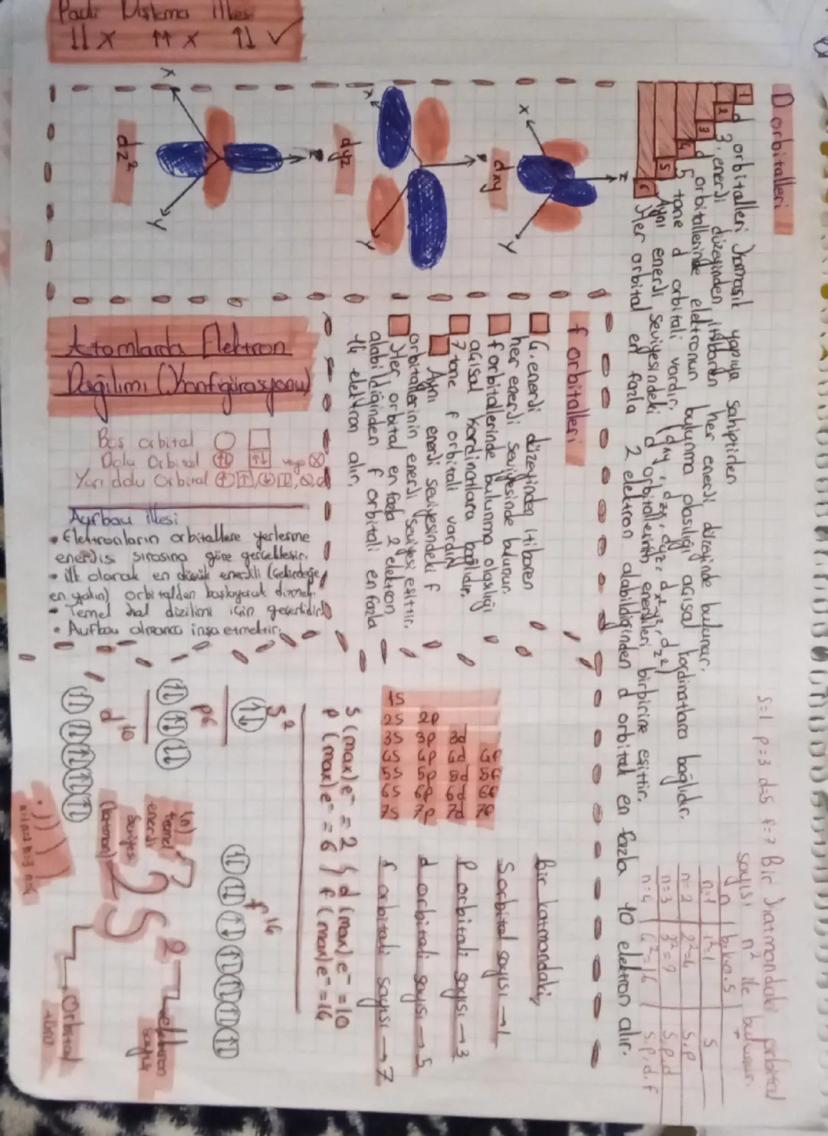 D orbitalleri
1 d orbitalleri karmaşık yapıya sahiptirler
2 3. enerji düzeyinden itibaren her enerji düzeyinde bulunur.
3 d orbitallerinde elektronun bulunma olasılığı açısal kordinatlara bağlıdır.
4 5 tane d orbitali vardır. (dxy, dxz, dyz, dx²-y², dz²)
5 Aynı enerji seviyesindeki d orbitallerinin enerjileri birbirine eşittir.
6 Her orbital en fazla 2 elektron alabildiğinden d orbital en fazla 10 elektron alır.
s=1 p=3 d=5 f=7 Bir katmandaki orbital
sayısı n² ile bulunur.
n
n=1 1²=1 s
n=2 2²=4 s,p
n=3 3²=9 s,p,d
n=4 4²=16 s,p,d,f
x z y
dxy
x y
dyz
x y
dz²
Pauli Dışlama İlkesi
↓↓ x ↑↑ x ↑↓ ✓
f orbitalleri
4. enerji düzeyinden itibaren
her enerji seviyesinde bulunur.
f orbitallerinde bulunma olasılığı
açısal kordinatlara bağlıdır.
7 tane f orbitali vardır.
Aynı enerji seviyesindeki f
orbitallerinin enerji seviyesi eşittir.
Her orbital en fazla 2 elektron
alabildiğinden f orbitali en fazla
14 elektron alır.
Atomlarda Elektron
Dağılımı (Konfigürasyonu)
Boş orbital
Dolu Orbital ↑↓ ↑↓ veya
Yarı dolu orbital
Aufbau ilkesi
• Elektronların orbitallere yerleşme
enerjis sırasına göre gerçekleşir.
• ilk olarak en düşük enerjili (çekirdeğe
en yakın) orbitalden başlayarak
• Temel hal dizilimi için geçerlidir.
• Aufbau almanca inşa etmektir.
Bir katmandaki;
S orbital sayısı → 1
P orbitali sayısı → 3
d orbitali sayısı → 5
f orbitali sayısı → 7
1s
2s 2p
3s 3p 3d
4s 4p 4d 4f
5s 5p 5d 5f
6s 6p 6d 6f
7s 7p 7d 7f
s (max) e⁻ = 2 } d (max) e⁻ = 10
p (max) e⁻ = 6 } f (max) e⁻ = 14
s²
p⁶
d¹⁰
f¹⁴
2s²
(n)
temel
enerji
seviyesi
(katman)
elektron
sayısı
Orbital